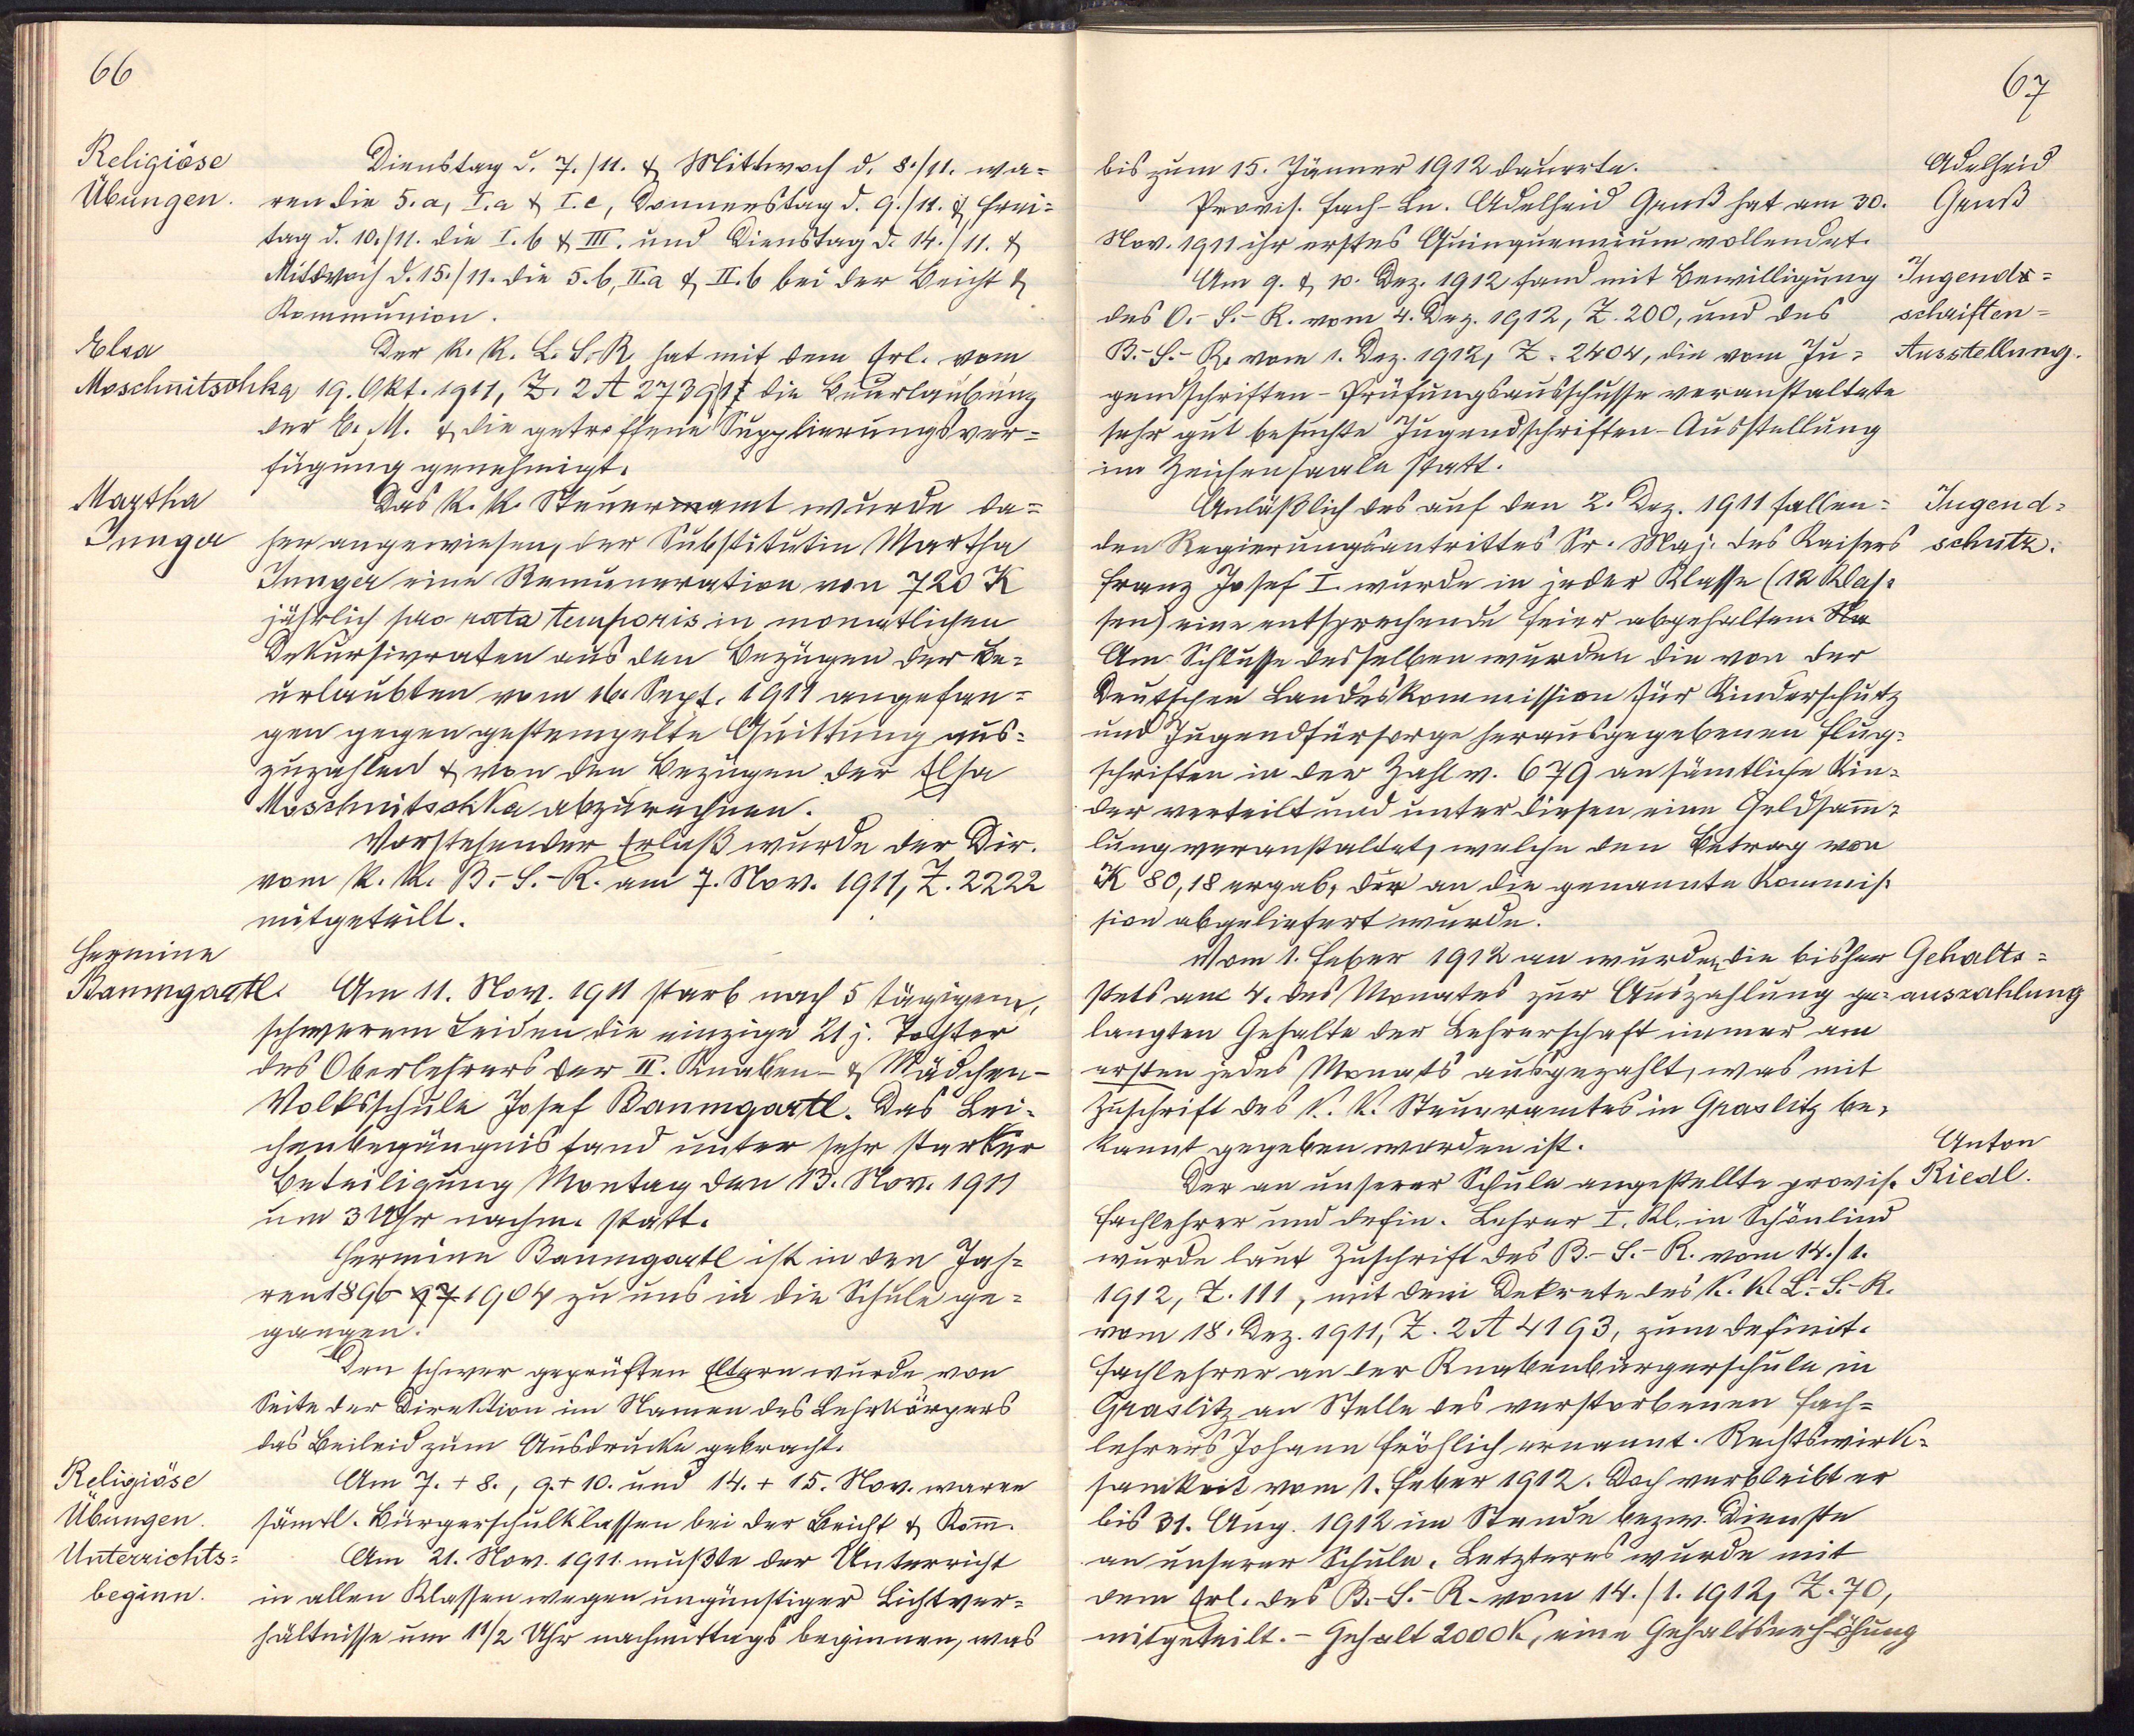 66
Religiöse
Übungen.
Dienstag d. 7./11. & Mittwoch d. 8./11. wa=
ren die 5. a, I. a & I. c, Donnerstag d. 9./11. & Frei=
tag d. 10./11. die I. b & III. und Dienstag d. 14./11. &
Mittwoch d. 15./11. die 5. b, II. a & II. b bei der Beicht &
Kommunion.
Elsa
Moschnitschka
Der k. k. L. S. R. hat mit dem Erl. vom
19. Okt. 1911, Z. 2 A 2739 die Beurlaubung
der E. M. & die getroffene Supplierungsver=
fügung genehmigt.
Martha
Junga
Das k. k. Steueramt wurde da=
her angewiesen, der Substitutin Martha
Junger eine Remuneration von 720 K
jährlich pro rata temporis in monatlichen
Dekursivraten aus den Bezügen der Be=
urlaubten vom 16. Sept. 1911 angefan=
gen gegen gestempelte Quittung aus=
zuzahlen & von den Bezügen der Elsa
Moschnitschka abzurechnen.
Vorstehender Erlaß wurde der Dir.
vom k. k. B.-S.-R. am 7. Nov. 1911, Z. 2222
mitgeteilt.
Hermine
Baumgartl.
Am 11. Nov. 1911 starb nach 5 tägigem,
schwerem Leiden die einzige 21 j. Tochter
des Oberlehrers der II. Knaben- & Mädchen-
Volksschule Josef Baumgartl. Das Lei=
chenbegängnis fand unter sehr starker
Beteiligung Montag den 13. Nov. 1911
um 3 Uhr nachm. statt.
Hermine Baumgartl ist in den Jah=
ren 1896 - 97 1904 zu uns in die Schule ge=
gangen.
Den schwer geprüften Eltern wurde von
Seite der Direktion im Namen des Lehrkörpers
das Beileid zum Ausdrucke gebracht.
Religiöse
Übungen.
Am 7. + 8., 9. + 10. und 14. + 15. Nov. waren
sämtl. Bürgerschulklassen bei der Beicht & Kom̄.
Unterrichts=
beginn.
Am 21. Nov. 1911 mußte der Unterricht
in allen Klassen wegen ungünstiger Lichtver=
hältnisse um 1 1/2 Uhr nachmittags beginnen, was
67
bis zum 15. Jänner 1912 dauerte.
Adelheid
Genß
Provis. Fach-Ln. Adelheid Genß hat am 30.
Nov. 1911 ihr erstes Quinquennium vollendet.
Jugends=
schriften=
Ausstellung.
Am 9. & 10. Dez. 1912 fand mit Bewilligung
des O.-S.-R. vom 4. Dez. 1912, Z. 200, und des
B.-S.-R. vom 1. Dez. 1912, Z. 2404, die vom Ju=
gendschriften-Prüfungsausschusse veranstaltete
sehr gut besuchte Jugendschriften-Ausstellung
im Zeichensaale statt.
Jugend=
schutz.
Anläßlich des auf den 2. Dez. 1911 fallen=
den Regierungsantrittes Sr. Maj. des Kaisers
Franz Josef I. wurde in jeder Klasse (12 Klas=
sen) eine entsprechende Feier abgehalten. Na
Am Schlusse desselben wurden die von der
Deutschen Landeskommission für Kinderschutz
und Jugendfürsorge herausgegebenen Flug=
schriften in der Zahl v. 679 an sämtliche Kin=
der verteilt und unter diesen eine Geldsam̄=
lung veranstaltet, welche den Betrag von
K 80,18 ergab, der an die genannte Kommis=
sion abgeliefert wurde.
Gehalts=
auszahlung
Vom 1. Feber 1912 an wurden die bisher
stets am 4. des Monates zur Auszahlung ge=
langten Gehalte der Lehrerschaft immer am
ersten jedes Monats ausgezahlt, was mit
Zuschrift des k. k. Steueramtes in Graslitz be=
kannt gegeben worden ist.
Anton
Riedl.
Der an unserer Schule angestellte provis.
Fachlehrer und defin. Lehrer I. Kl. in Schönlind
wurde laut Zuschrift des B.-S.-R. vom 14./1.
1912, Z. 111, mit dem Dekrete des k. k. L.-S.-R.
vom 18. Dez. 1911, Z. 2 A 4193, zum definit.
Fachlehrer an der Knabenbürgerschule in
Graslitz an Stelle des verstorbenen Fach=
lehrers Johann Fröhlich ernannt. Rechtswirk=
samkeit vom 1. Feber 1912. Doch verbleibt er
bis 31. Aug. 1912 im Stande bezw. Dienste
an unserer Schule. Letzteres wurde mit
dem Erl. des B.-S.-R. vom 14./1. 1912, Z. 70,
mitgeteilt. - Gehalt 2000 K, eine Gehaltserhöhung